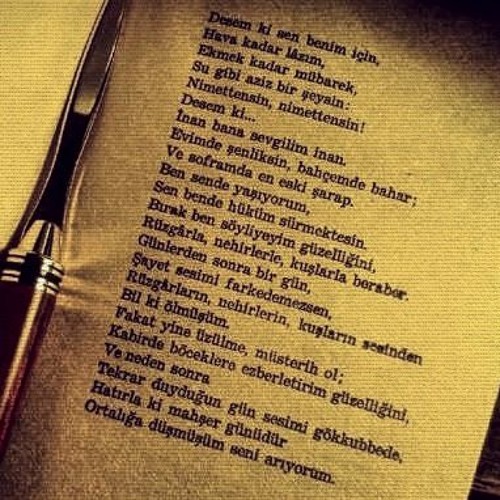 Desem ki sen benim için,
Hava kadar lâzım,
Ekmek kadar mübarek,
Su gibi aziz bir şeysin:
Nimettensin, nimettensin!
Desem ki...
İnan bana sevgilim inan.
Evimde şenliksin, bahçemde bahar;
Ve soframda en eski şarap.
Ben sende yaşıyorum,
Sen bende hüküm sürmektesin.
Bırak ben söyliyeyim güzelliğini,
Rüzgârla, nehirlerle, kuşlarla beraber.
Günlerden sonra bir gün,
Şayet sesimi farkedemezsen,
Rüzgârların, nehirlerin, kuşların sesinden
Bil ki ölmüşüm.
Fakat yine üzülme, müsterih ol;
Kabirde böceklere ezberletirim güzelliğini,
Ve neden sonra
Tekrar duyduğun gün sesimi gökkubbede,
Hatırla ki mahşer günüdür
Ortalığa düşmüşüm seni arıyorum.